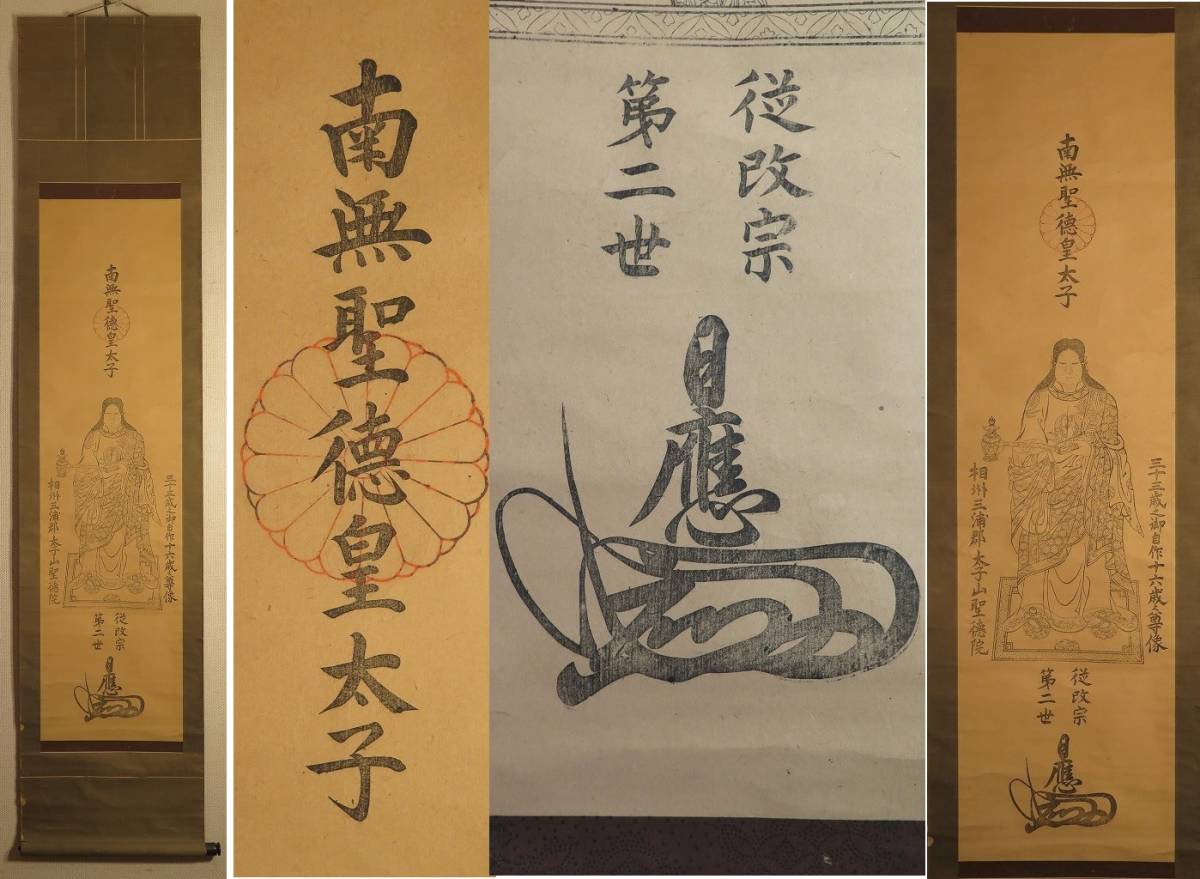 南無聖德皇太子
三十三歳之御自作十六歳之尊像
相州三浦郡太子山聖徳院
從改宗
第二世
日應
南無聖德皇太子
從改宗
第二世
日應
南無聖德皇太子
三十三歳之御自作十六歳之尊像
相州三浦郡太子山聖徳院
從改宗
第二世
日應